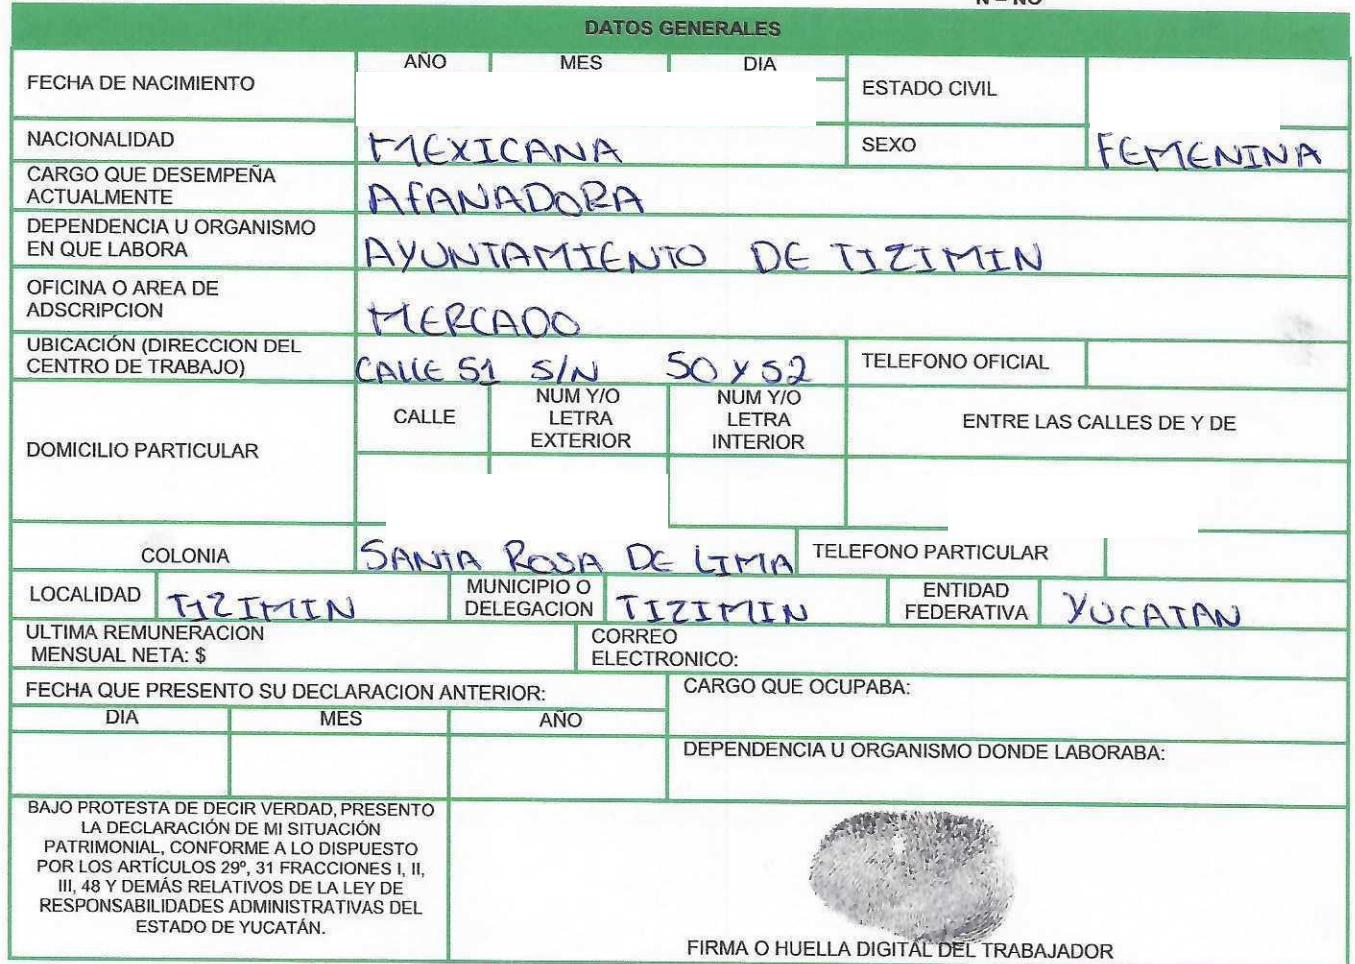 DATOS GENERALES
FECHA DE NACIMIENTO AÑO MES DIA ESTADO CIVIL
NACIONALIDAD MEXICANA SEXO FEMENINA
CARGO QUE DESEMPEÑA
ACTUALMENTE AFANADORA
DEPENDENCIA U ORGANISMO
EN QUE LABORA AYUNTAMIENTO DE TIZIMIN
OFICINA O AREA DE
ADSCRIPCION MERCADO
UBICACIÓN (DIRECCION DEL
CENTRO DE TRABAJO) CALLE 51 S/N 50 Y 52 TELEFONO OFICIAL
DOMICILIO PARTICULAR
CALLE
NUM Y/O
LETRA
EXTERIOR
NUM Y/O
LETRA
INTERIOR
ENTRE LAS CALLES DE Y DE
COLONIA SANTA ROSA DE LIMA TELEFONO PARTICULAR
LOCALIDAD TIZIMIN
MUNICIPIO O
DELEGACION TIZIMIN
ENTIDAD
FEDERATIVA YUCATAN
ULTIMA REMUNERACION
MENSUAL NETA: $
CORREO
ELECTRONICO:
FECHA QUE PRESENTO SU DECLARACION ANTERIOR:
DIA MES AÑO
CARGO QUE OCUPABA:
DEPENDENCIA U ORGANISMO DONDE LABORABA:
BAJO PROTESTA DE DECIR VERDAD, PRESENTO
LA DECLARACIÓN DE MI SITUACIÓN
PATRIMONIAL, CONFORME A LO DISPUESTO
POR LOS ARTÍCULOS 29º, 31 FRACCIONES I, II,
III, 48 Y DEMÁS RELATIVOS DE LA LEY DE
RESPONSABILIDADES ADMINISTRATIVAS DEL
ESTADO DE YUCATÁN.
FIRMA O HUELLA DIGITAL DEL TRABAJADOR